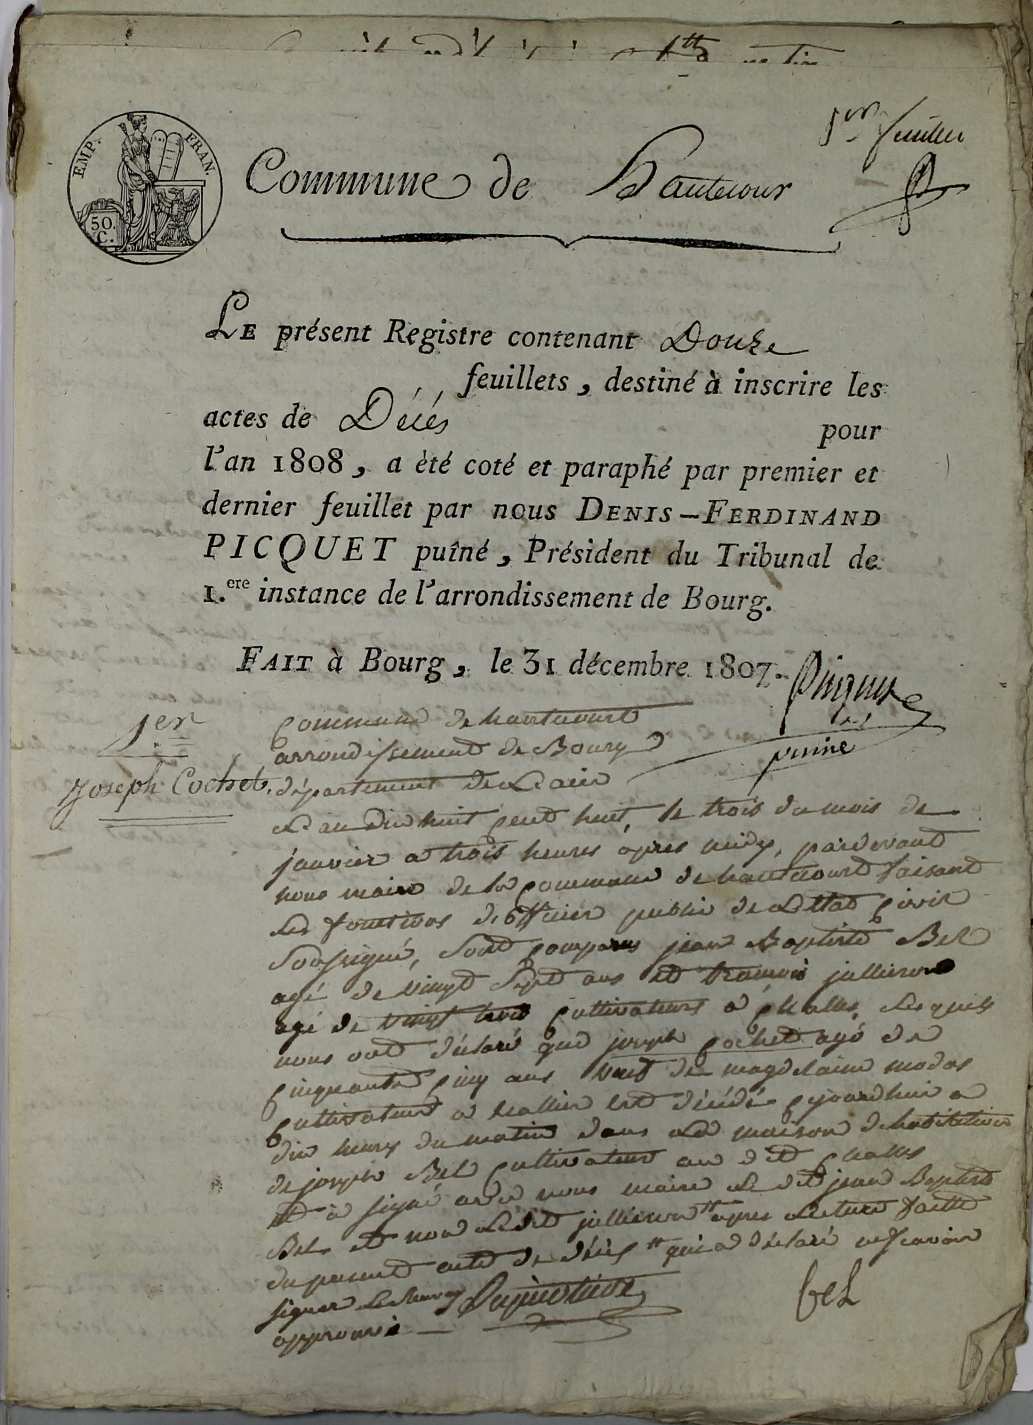 1er feuillet
EMP. FRAN.
50. C.
Commune de hautecour
LE présent Registre contenant Douze
feuillets, destiné à inscrire les
actes de Décés pour
l'an 1808, a été coté et paraphé par premier et
dernier feuillet par nous DENIS-FERDINAND
PICQUET puîné, Président du Tribunal de
1.ere instance de l'arrondissement de Bourg.
FAIT à Bourg, le 31 décembre 1807.
Picquet
puiné
1er
Joseph Cochet
Commune de hautecourt
arrondissement de Bourg
département de Lain
Lan dix huit cent huit, le trois du mois de
janvier a trois heures apres midy, pardevant
nous maire de la commune de hautecourt faisant
les fonctions dofficier public de Letat Civil
Soussigné, sont comparus jean Baptiste Bel
agé de vingt sept ans et francois jullieron
agé de vingt trois cultivateurs a challes, lesquels
nous ont déclaré que joseph cochet agé de
cinquante cinq ans veuf de magdelaine modas
cultivateur a hallier est décédé cejourdhuit a
dix heures du matin dans la maison dhabitation
de joseph Bel cultivateur au dit challes
et a signé avec nous maire le dit jean Baptiste
Bel et non Ledit jullieron apres Lecture faitte
du present acte de décès qui a déclaré ne scavoir
signer
approuvé
bel